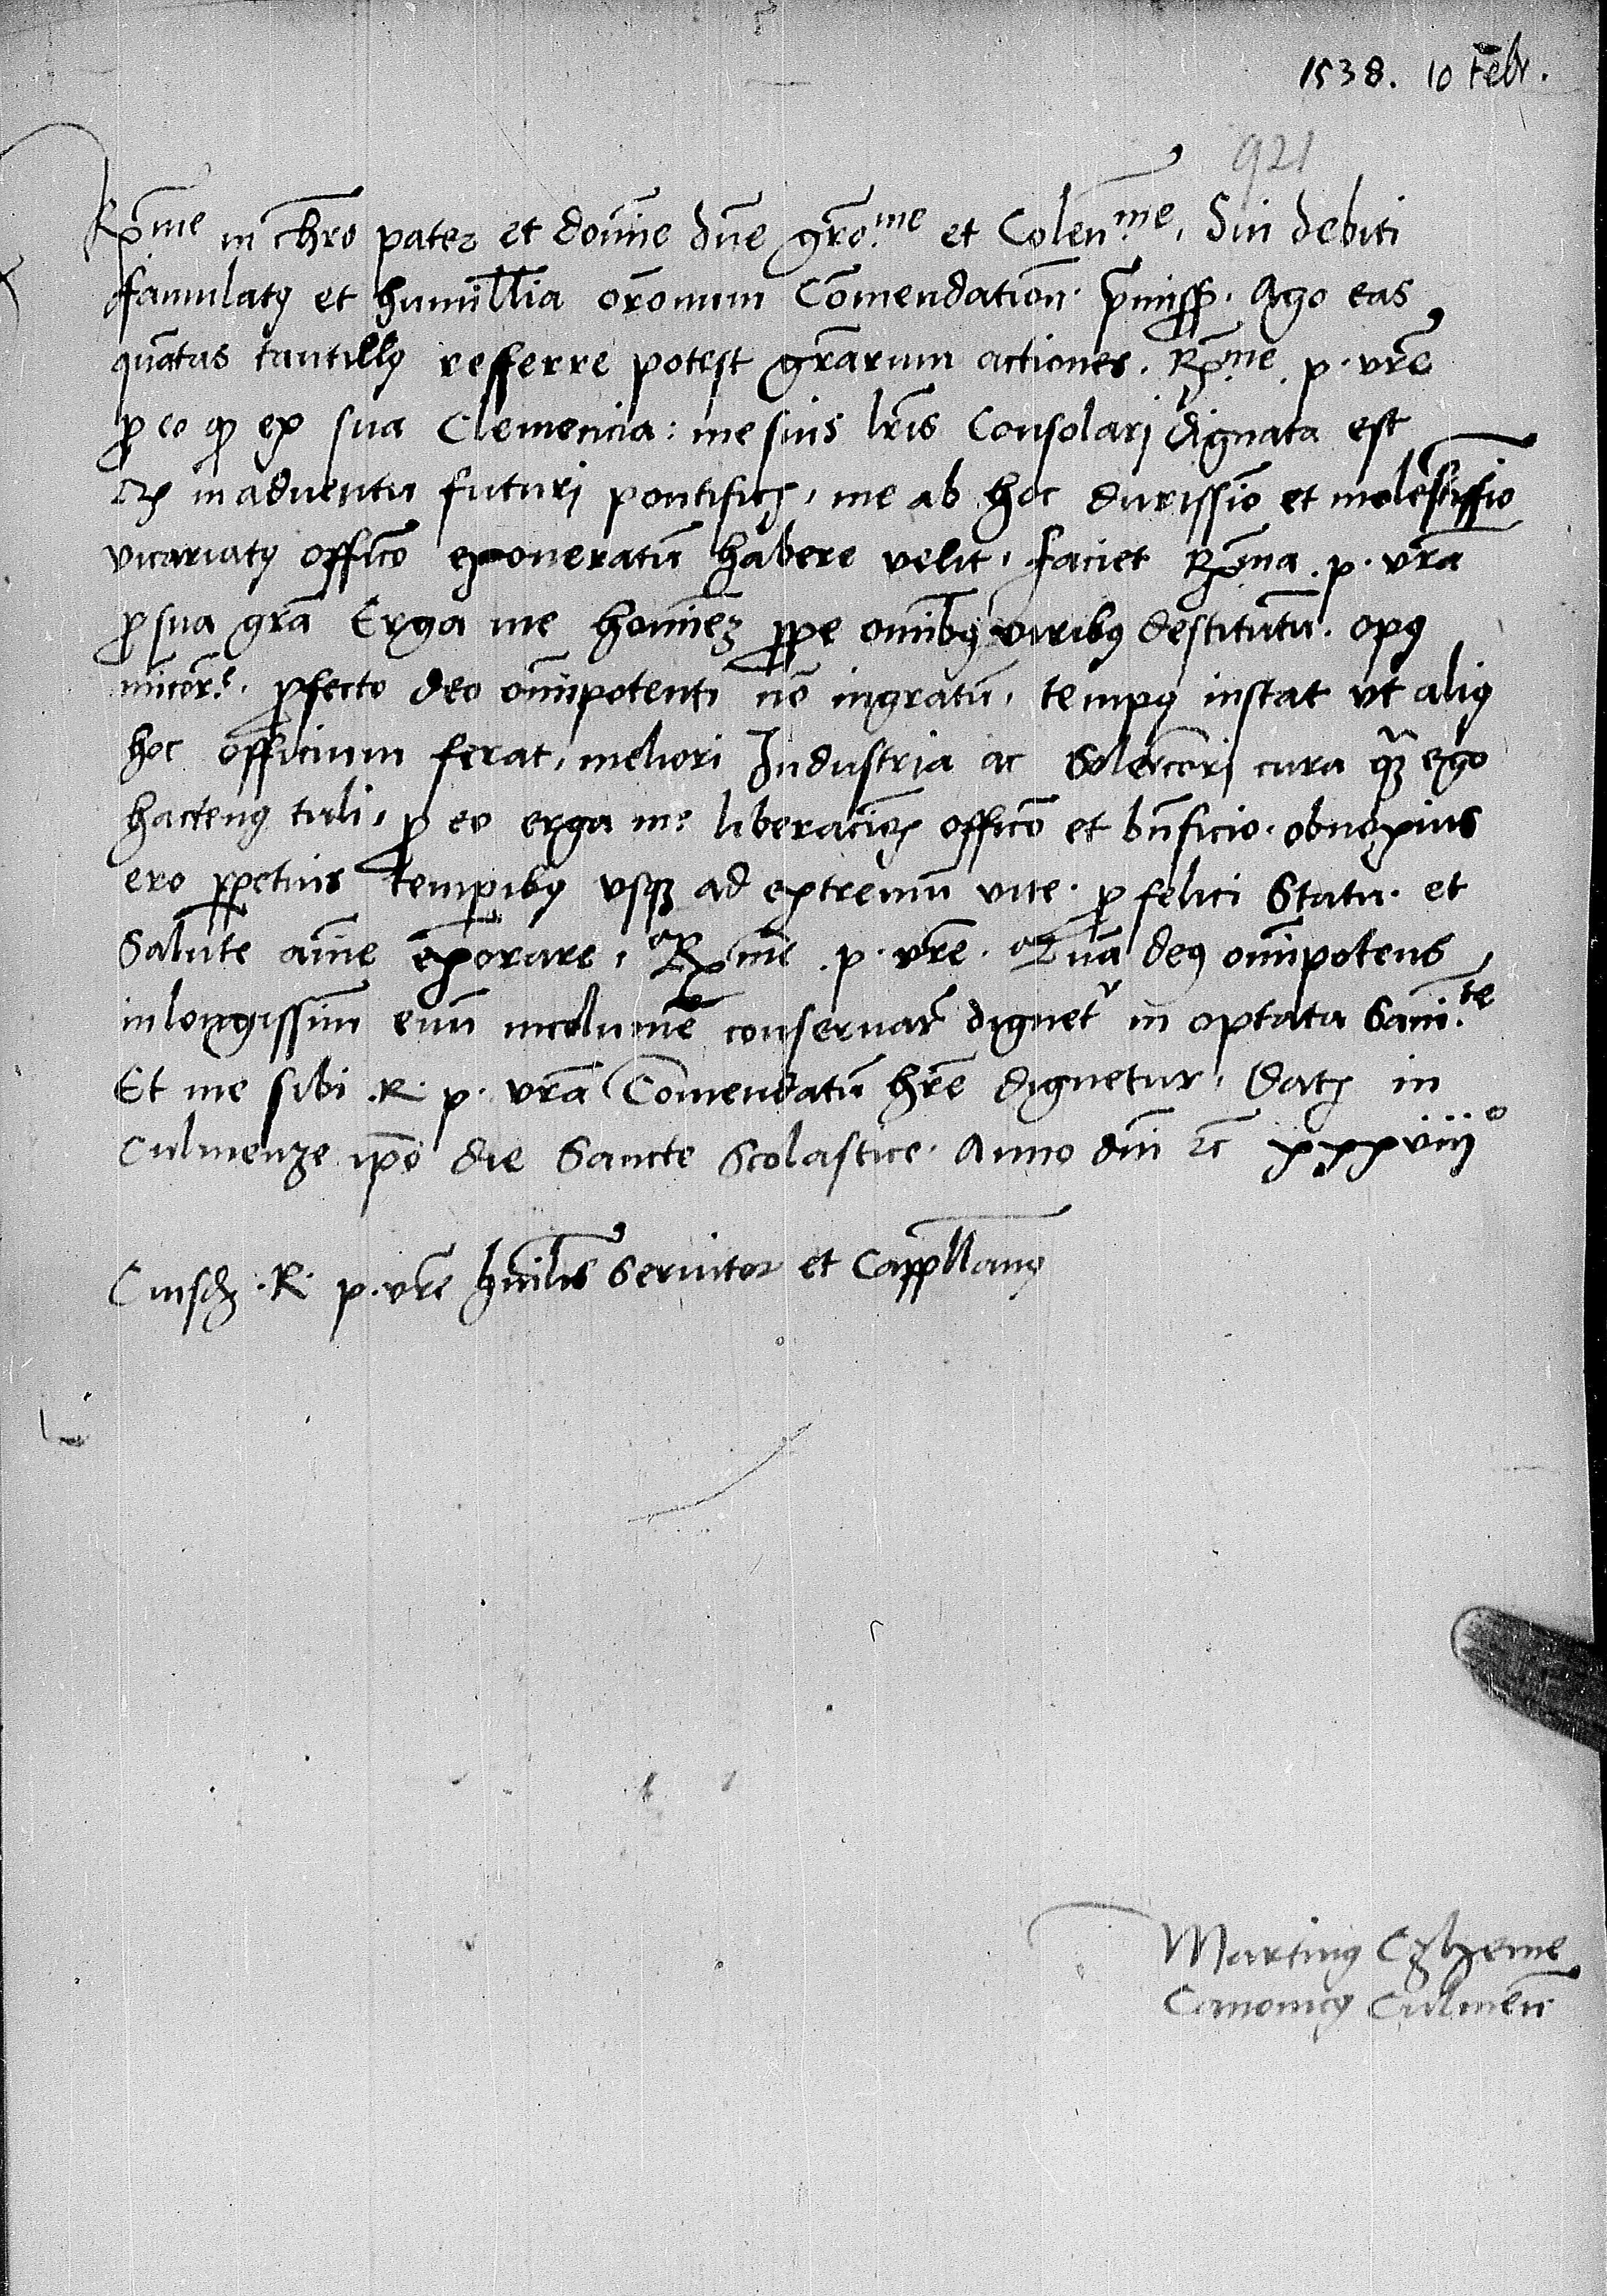 1538. 10 Febr.
921
Rme in chro pater et domine dne gro.me et Colen.me. Sui debiti
famulatꝰ et humillia oronum Comendation. pmissꝭ. Ago eas
quãtas tantillꝰ refferre potest grarum actiones. Rme. p. vre
ꝓ eo qꝫ ex sua Clemencia: me suis lris Consolarj dignata est
in aduentu futurj pontificꝭ, me ab hoc durissio et molestissio
vicariatꝰ offico exoneratũ habere velit. faciet Rma. p. vra
ꝓ sua gra Erga me hominẽ ꝓpe omibꝰ viribꝰ destitutũ. opꝰ
micor.e. ꝓfecto deo omipotenti nõ ingratũ. tempꝰ instat vt aliꝰ
hoc officium ferat, meliori Industria ac Solercorj cura qꝫ ego
hactenꝰ tuli. ꝓ eo erga me liberacõis offico et bnficio. obnoxius
ero ꝑpetuis tempibꝰ vsqꝫ ad extremũ vite. ꝓ felici Statu. et
Salute aime exorare. Rme. p. vre. Quã deꝰ omipotens
in longissim euũ incolumẽ conseruar dignetr in optata Sani.te
Et me sibi .R. p. vra Comendatũ hre dignetur. Datꝭ in
Culmenze ipo die Sancte Scolastice. Anno dni ꝛc xxxviiiº
Cuisdꝫ .R. p. vre huilis Seruitor et Cappllanꝰ
Martinꝰ Czheme
Canonicꝰ Culmeñ